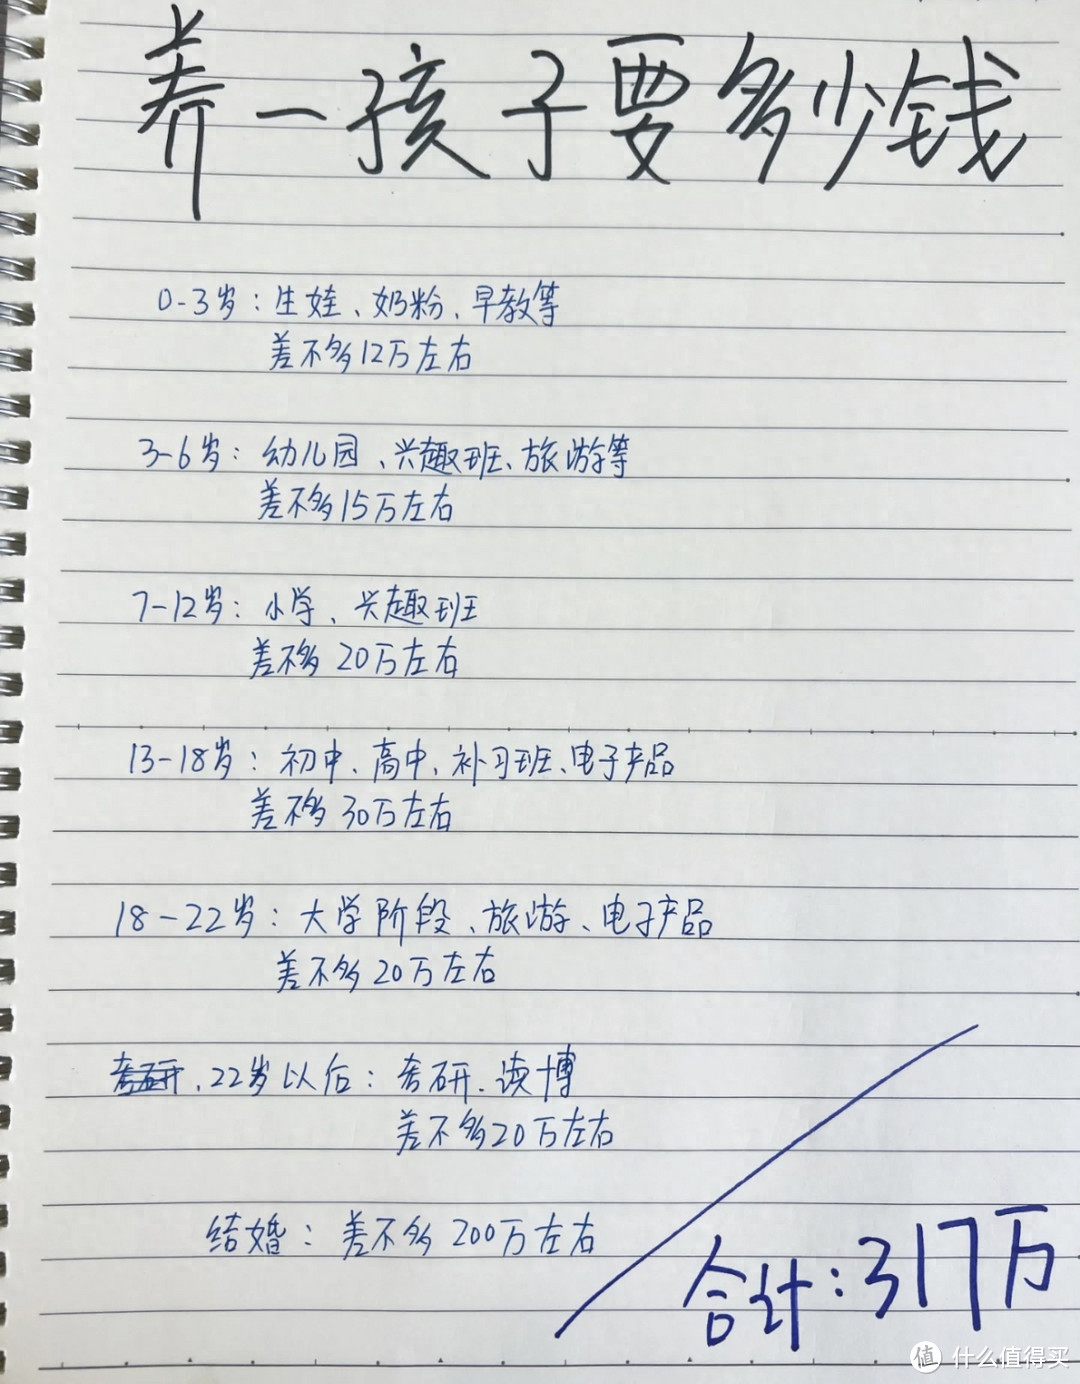 养一孩子要多少钱
0-3岁：生娃、奶粉、早教等
差不多12万左右
3-6岁：幼儿园、兴趣班、旅游等
差不多15万左右
7-12岁：小学、兴趣班
差不多 20万左右
13-18岁：初中、高中、补习班、电子产品
差不多 30万左右
18-22岁：大学阶段、旅游、电子产品
差不多 20万左右
考研、22岁以后：考研、读博
差不多20万左右
结婚：差不多 200万左右
合计：317万
值 什么值得买